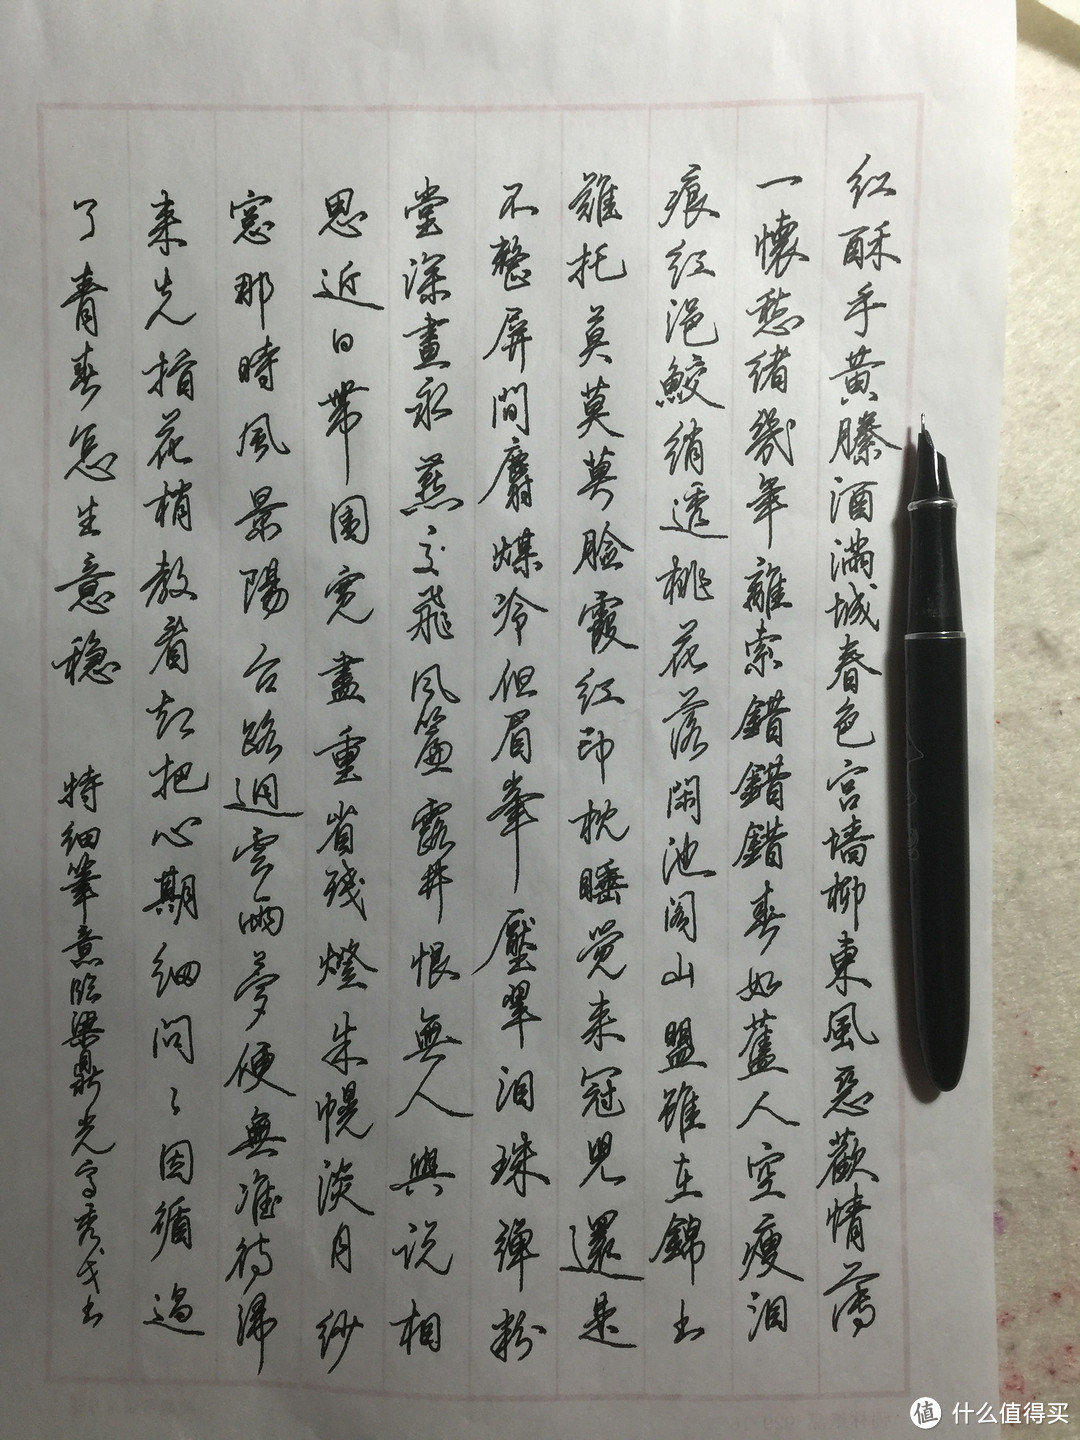 红酥手黄縢酒满城春色宫墙柳東風惡歡情薄
一懷愁绪幾年離索錯錯錯春如舊人空瘦泪
痕红浥鲛绡透桃花落闲池阁山盟雖在錦书
難托莫莫莫脸霞红印枕睡觉来冠兒還是
不整屏間麝煤冷但眉峯壓翠泪珠弹粉
堂深晝永燕交飛风簾露井恨無人與说相
思近日带围宽盡重省残燈朱幌淡月纱
窓那時風景陽台路迥雲雨夢便無准待归
来先指花梢教看却把心期细问々因循過
了青春怎生意稳
特细筆意临梁鼎光写秀
值 什么值得买